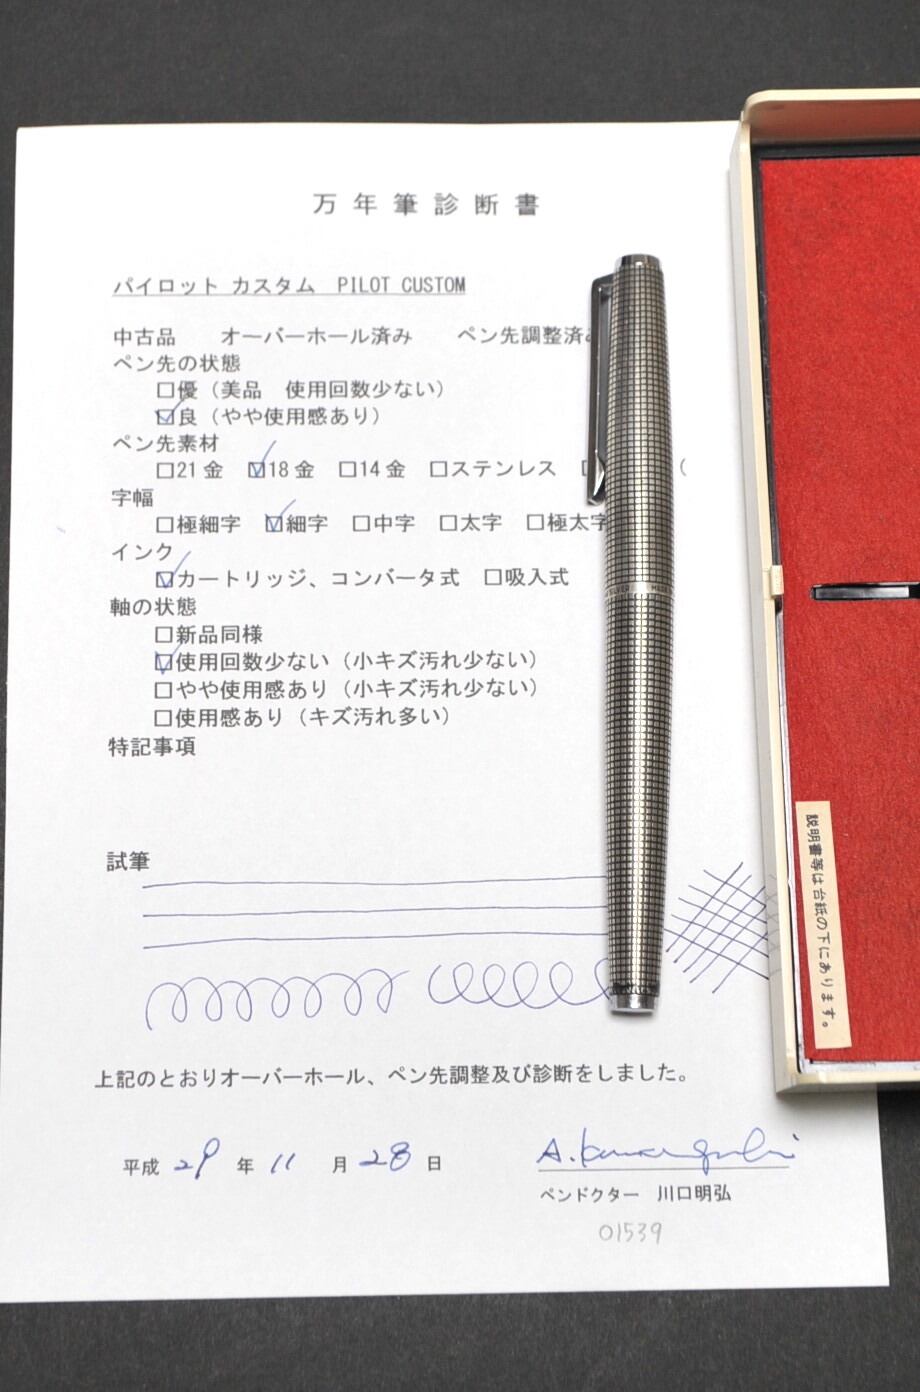 万年筆診断書
パイロット カスタム PILOT CUSTOM
中古品 オーバーホール済み ペン先調整済み
ペン先の状態
□優（美品 使用回数少ない）
☑良（やや使用感あり）
ペン先素材
□21金 ☑18金 □14金 □ステンレス □ （
字幅
□極細字 ☑細字 □中字 □太字 □極太字
インク
☑カートリッジ、コンバータ式 □吸入式
軸の状態
□新品同様
☑使用回数少ない（小キズ汚れ少ない）
□やや使用感あり（小キズ汚れ少ない）
□使用感あり（キズ汚れ多い）
特記事項
試筆
上記のとおりオーバーホール、ペン先調整及び診断をしました。
平成 29 年 11 月 28 日
A. Kawaguchi
ペンドクター 川口明弘
01539
説明書等は台紙の下にあります。